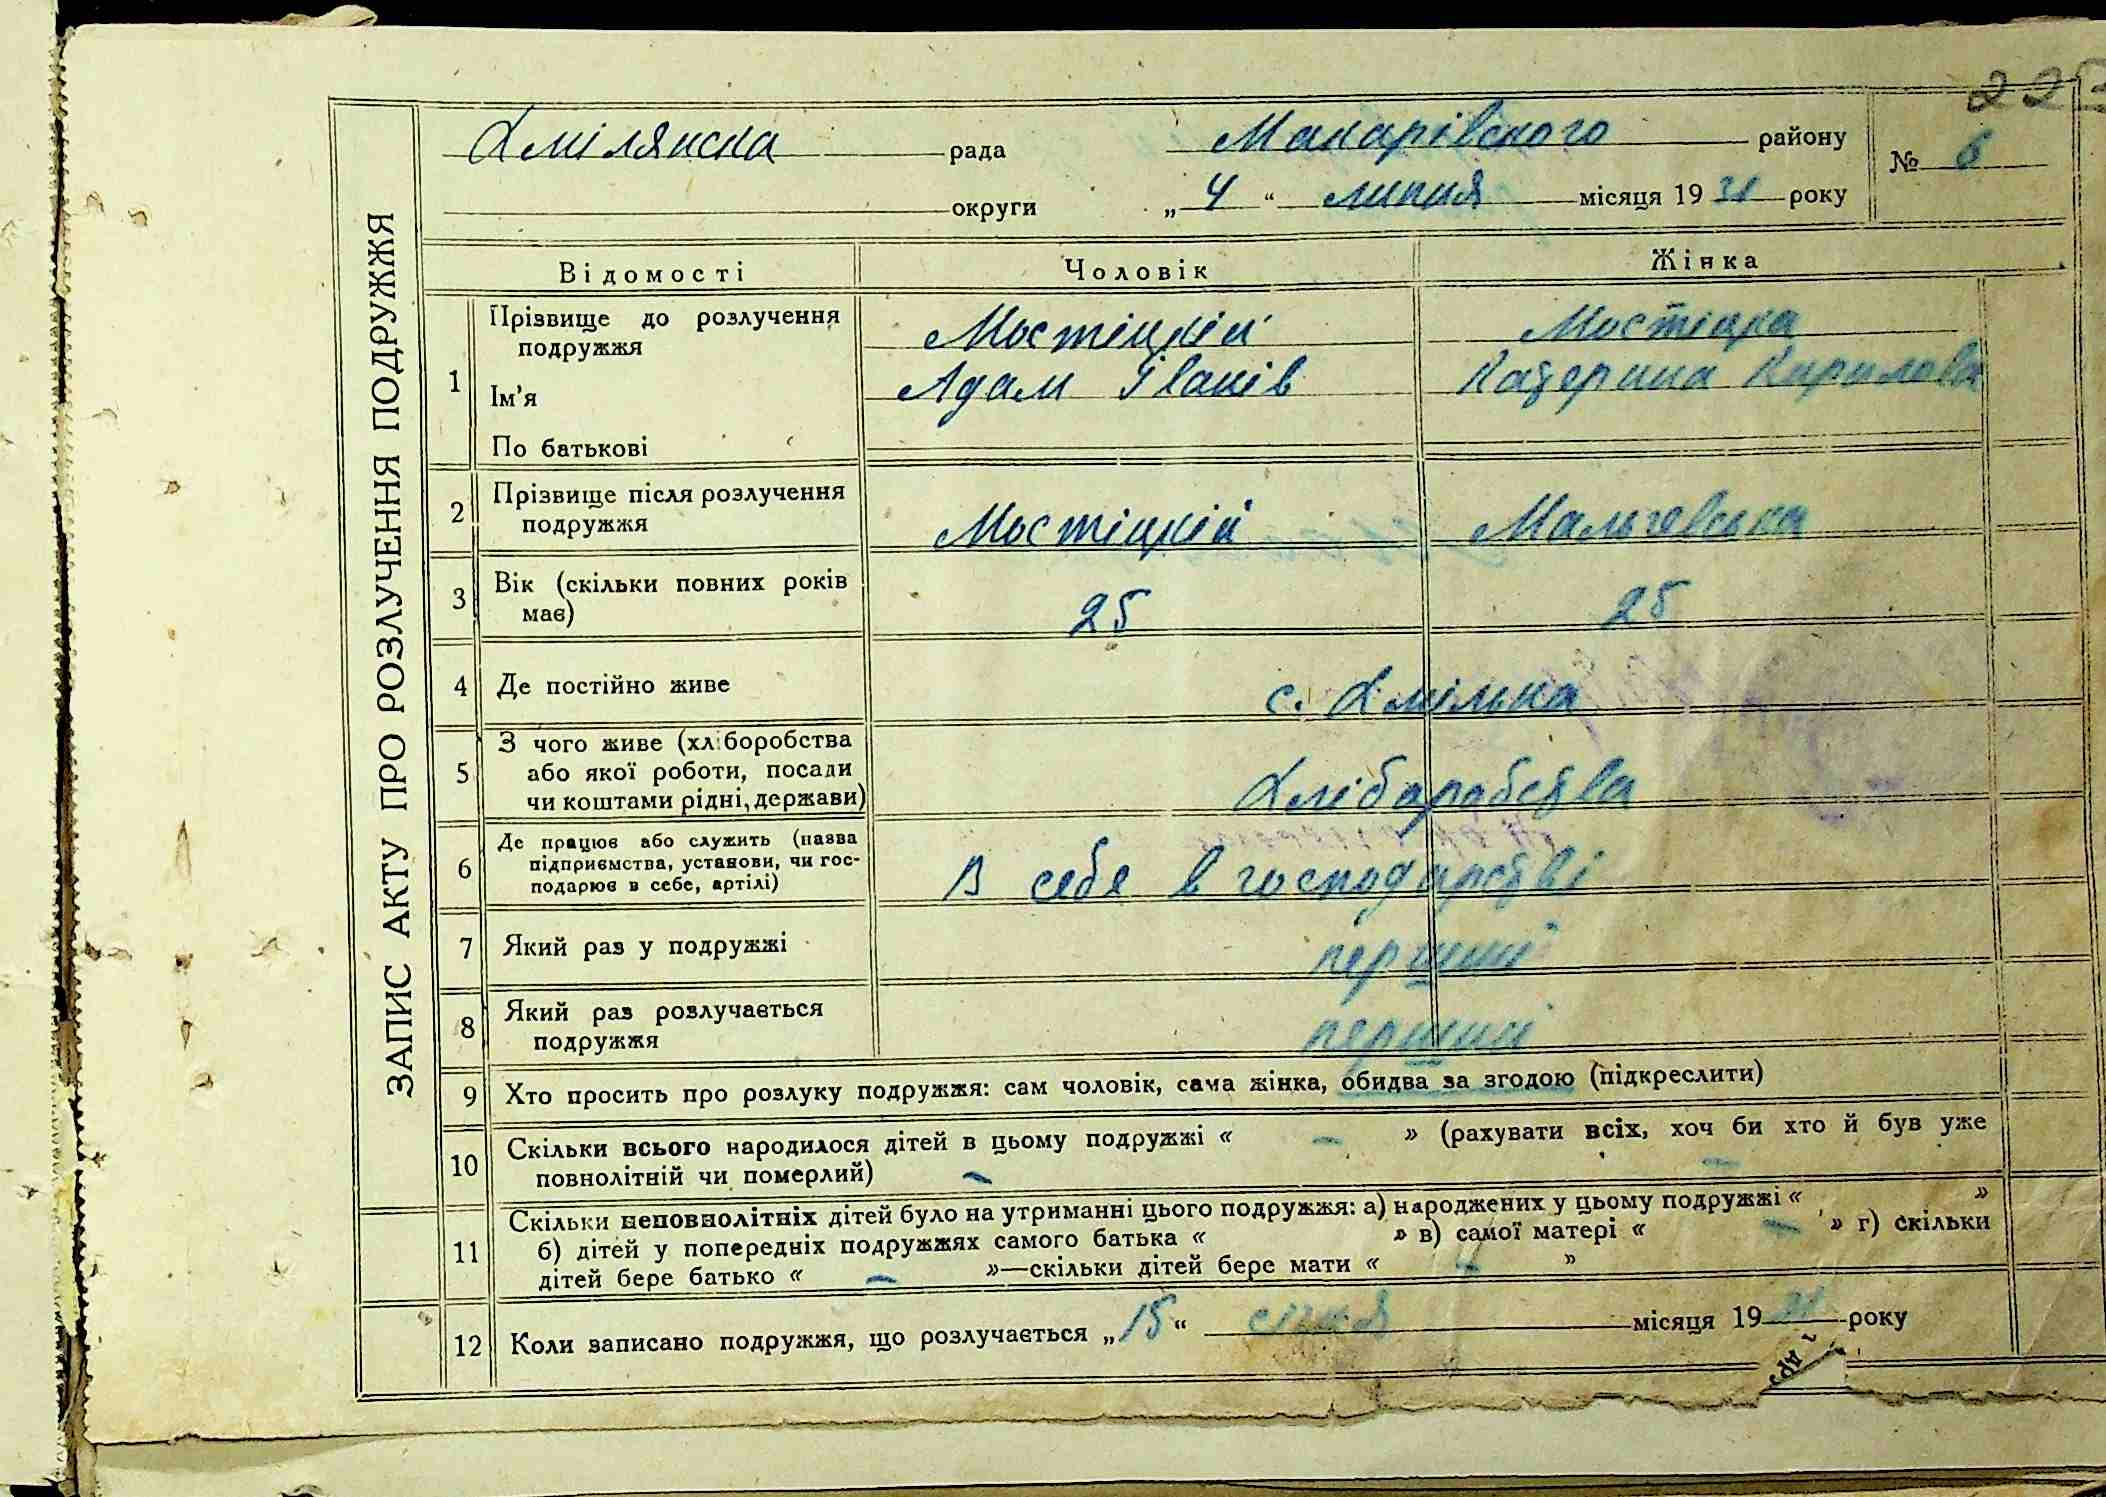 ЗАПИС АКТУ ПРО РОЗЛУЧЕННЯ ПОДРУЖЖЯ
Хмілянска рада Макарівского району № 6
округи „ 4 “ липня місяця 1931 року
Відомості Чоловік Жінка
1 Прізвище до розлучення подружжя Мостіцкій Мостіцка
Ім'я Адам Іванів Катерина Кирилова
По батькові
2 Прізвище після розлучення подружжя Мостіцкій Мальчевська
3 Вік (скільки повних років має) 25 25
4 Де постійно живе с. Хмільна
5 З чого живе (хліборобства або якої роботи, посади чи коштами рідні, держави) Хлібаробства
6 Де працює або служить (назва підприємства, установи, чи господарює в себе, артілі) В себе в господарстві
7 Який раз у подружжі перший
8 Який раз розлучається подружжя перший
9 Хто просить про розлуку подружжя: сам чоловік, сама жінка, обидва за згодою (підкреслити)
10 Скільки всього народилося дітей в цьому подружжі « – » (рахувати всіх, хоч би хто й був уже
повнолітній чи померлий) –
11 Скільки неповнолітніх дітей було на утриманні цього подружжя: а) народжених у цьому подружжі « – »
б) дітей у попередніх подружжях самого батька « » в) самої матері « – » г) скільки
дітей бере батько « – »—скільки дітей бере мати « – »
12 Коли записано подружжя, що розлучається „ 15 “ січня місяця 1931 року